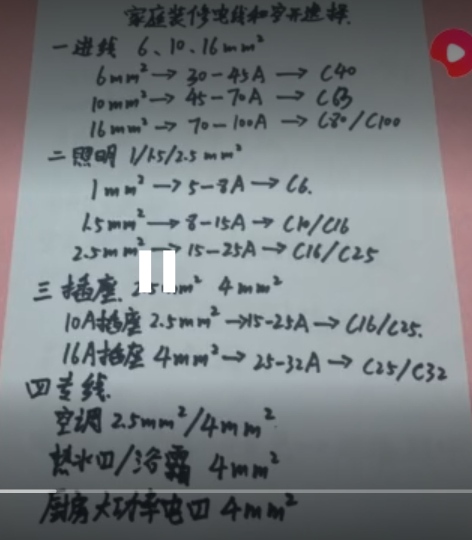 家庭装修电线和空开选择.
一进线 6、10、16mm²
6mm²→30-45A→C40
10mm²→45-70A→C63
16mm²→70-100A→C80/C100
二照明 1/1.5/2.5mm²
1mm²→5-8A→C6.
1.5mm²→8-15A→C10/C16
2.5mm²→15-25A→C16/C25
三插座 2.5mm² 4mm²
10A插座 2.5mm²→15-25A→C16/C25.
16A插座 4mm²→25-32A→C25/C32
四专线
空调 2.5mm²/4mm²
热水四/浴霸 4mm²
厨房大功率电四 4mm²